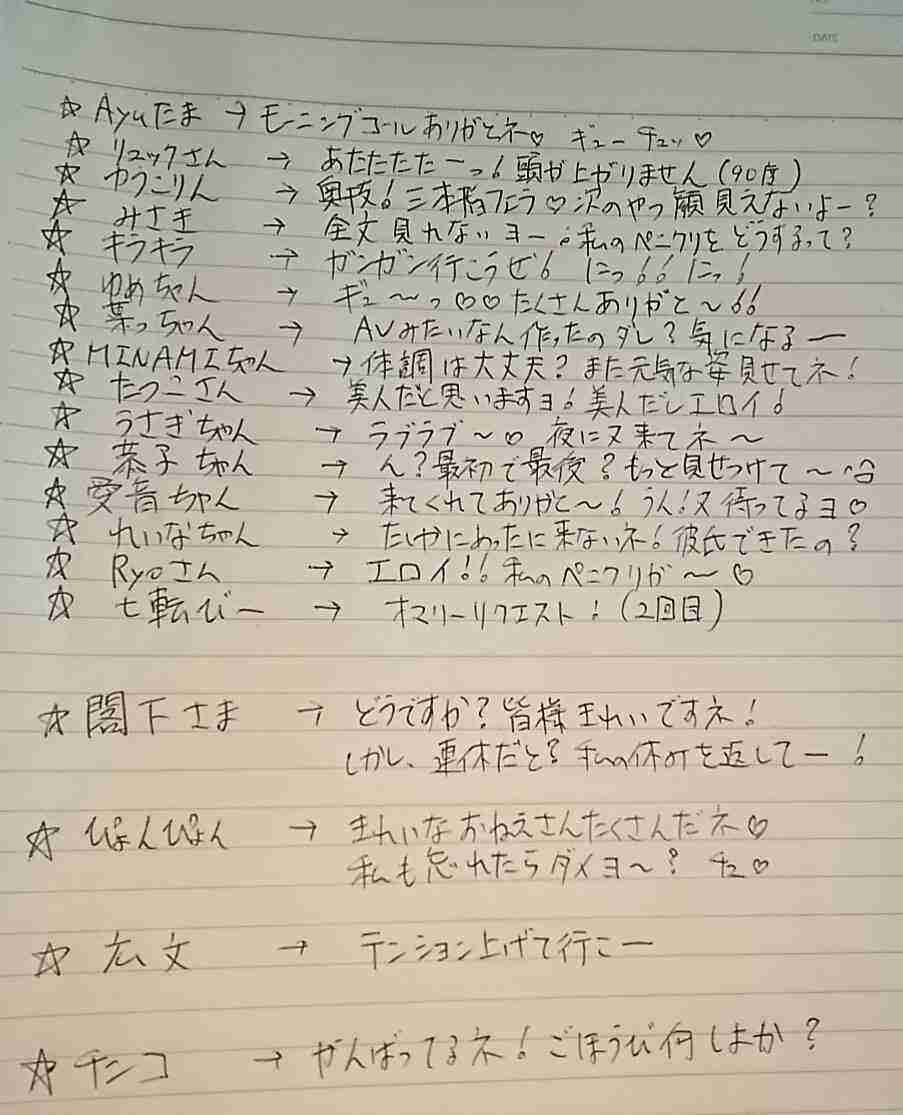 DATE
☆ Ayuたま → モーニングコールありがとネ♡ ギュー チュッ♡
☆ リュックさん → あたたたたーっ! 頭が上がりません(90度)
☆ ゆうこりん → 奥技! 三本フェラ♡次のやつ顔見えないよー?
☆ みさき → 全文見れないヨー! 私のペニクリをどうするって?
☆ キラキラ → ガンガン行こうぜ! にっ!! にっ!
☆ ゆめちゃん → ギュ〜っ♡♡たくさんありがと〜!!
☆ 葉っちゃん → AVみたいなん作ったのダレ? 気になるー
☆ MINAMIちゃん → 体調は大丈夫? また元気な姿見せてネ!
☆ たつこさん → 美人だと思いますヨ! 美人だしエロイ!
☆ うさぎちゃん → ラブラブ〜♡ 夜に又来てネ〜
☆ 恭子ちゃん → ん? 最初で最後? もっと見せつけて〜
☆ 愛音ちゃん → 来てくれてありがと〜! うん! 又待ってるヨ♡
☆ れいなちゃん → たしかにめったに来ないネ! 彼氏できたの?
☆ Ryoさん → エロイ!! 私のペニクリが〜♡
☆ 七転びー → オマリーリクエスト!(2回目)
☆ 閣下さま → どうですか? 皆様きれいですネ!
しかし、連休だと? 私の休みを返してー!
☆ ぴょんぴょん → きれいなおねえさんたくさんだネ♡
私も忘れたらダメヨ〜? チュ♡
☆ 広文 → テンション上げて行こー
☆ チンコ → がんばってるネ! ごほうび何しよか?